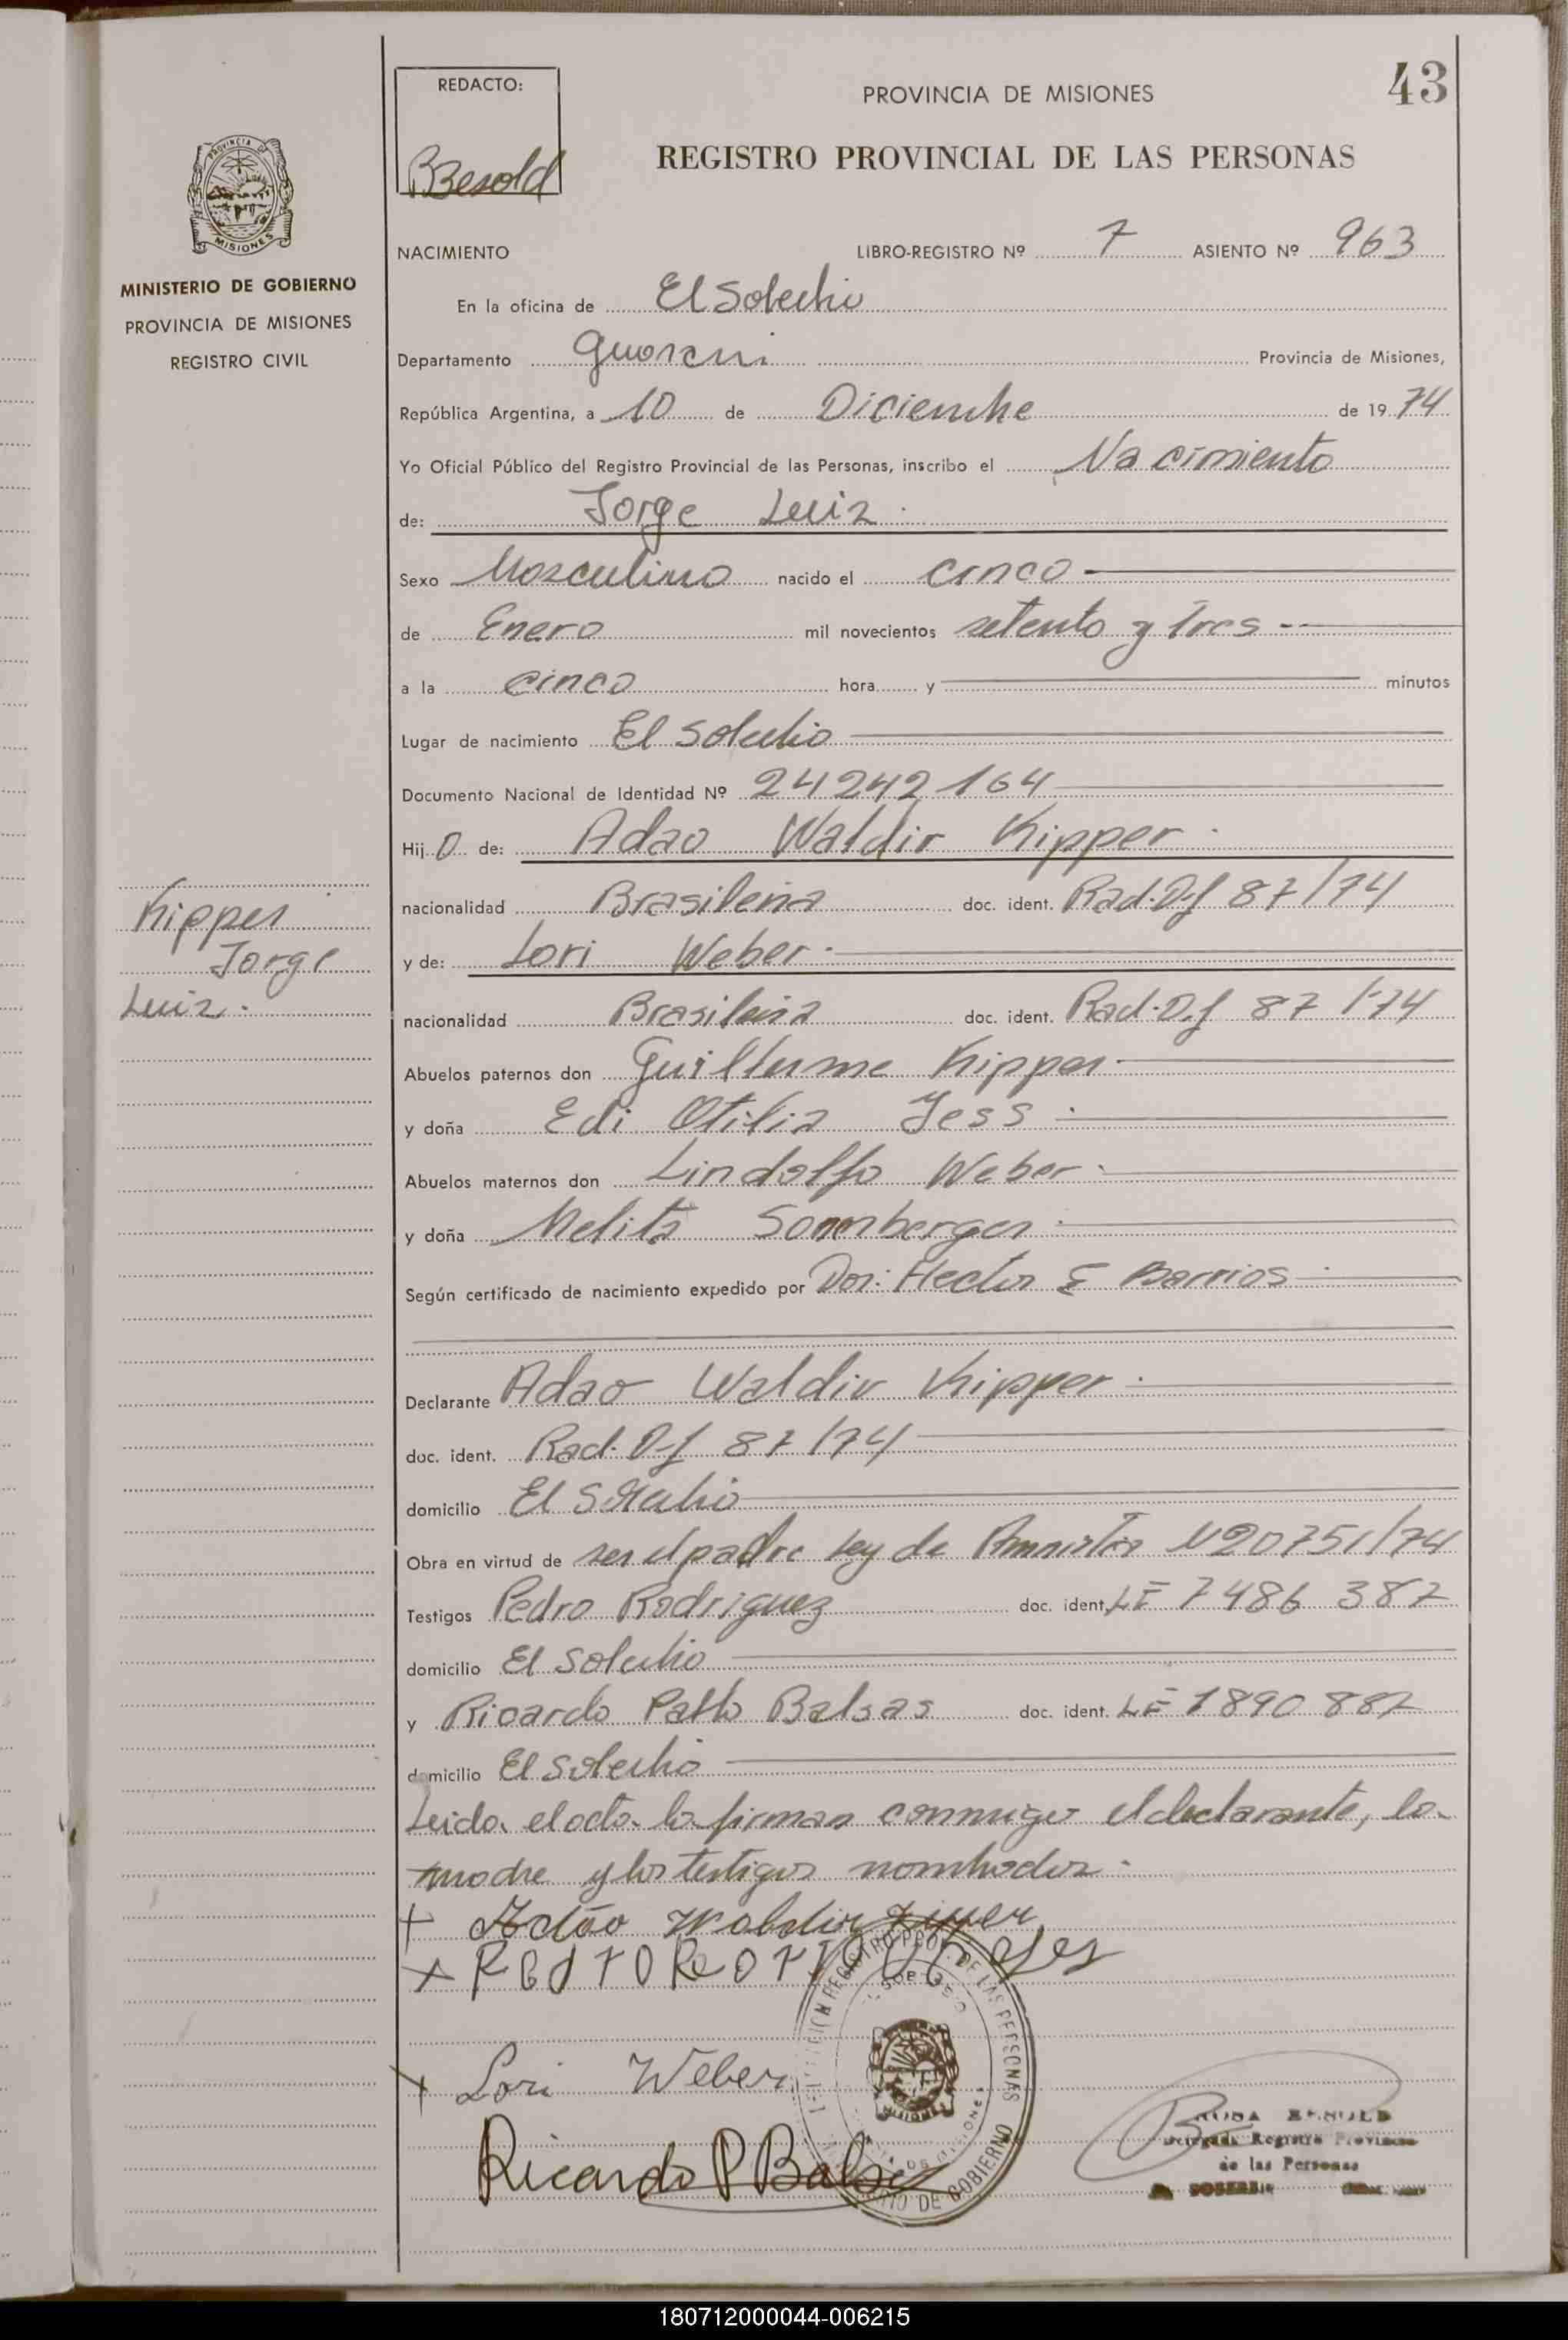 43
REDACTO:
BBesold
PROVINCIA DE MISIONES
REGISTRO PROVINCIAL DE LAS PERSONAS
PROVINCIA DE
MISIONES
MINISTERIO DE GOBIERNO
PROVINCIA DE MISIONES
REGISTRO CIVIL
NACIMIENTO LIBRO-REGISTRO Nº 7 ASIENTO Nº 963
En la oficina de El Soberbio
Departamento Guarani Provincia de Misiones,
República Argentina, a 10 de Diciembre de 1974
Yo Oficial Público del Registro Provincial de las Personas, inscribo el Nacimiento
de: Jorge Luiz.
Sexo Masculino nacido el cinco
de Enero mil novecientos setenta y tres
a la cinco hora y minutos
Lugar de nacimiento El Soberbio
Documento Nacional de Identidad Nº 24242164
Hij o de: Adao Waldir Kipper.
nacionalidad Brasileña doc. ident. Rad. Df 87/74
y de: Lori Weber.
nacionalidad Brasileña doc. ident. Rad. Df 87/74
Abuelos paternos don Guillerme Kipper
y doña Edi Otilia Jess.
Abuelos maternos don Lindolfo Weber.
y doña Melita Sonnberger.
Según certificado de nacimiento expedido por Dor: Hector E Barrios
Declarante Adao Waldir Kipper.
doc. ident. Rad. Df 87/74
domicilio El Soberbio
Obra en virtud de ser el padre Ley de Amnistia N20751/74
Testigos Pedro Rodriguez doc. ident. LE 7486 387
domicilio El Soberbio
y Ricardo Pablo Balsas doc. ident. LE 1890 887
domicilio El Soberbio
Leida el acta la firman conmigo el declarante, la
madre y los testigos nombrados.
Kipper
Jorge
Luiz.
+ Adão Waldir Kipper
x
x Lori Weber
Ricardo P Balsas
REGISTRO PROV. DE LAS PERSONAS
MISIONES
DE GOBIERNO
ROSA BESOLD
Delegada Registro Provincial
de las Personas
180712000044-006215